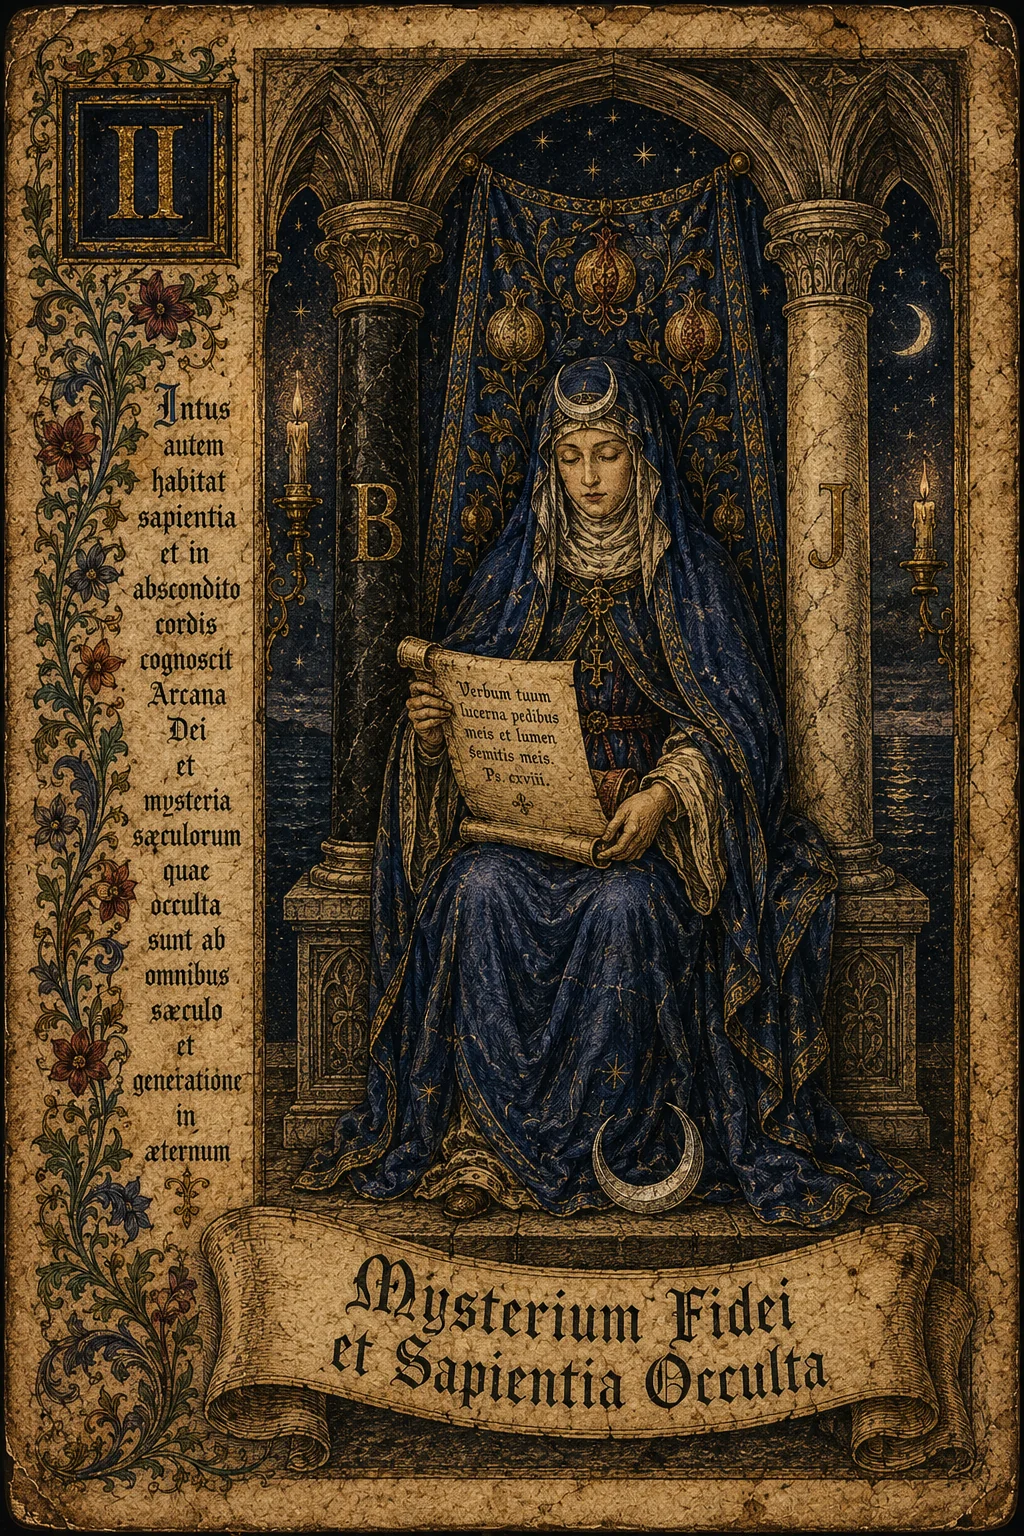 II
Intus
autem
habitat
sapientia
et in
abscondito
cordis
cognoscit
Arcana
Dei
et
mysteria
sæculorum
quae
occulta
sunt ab
omnibus
sæculo
et
generatione
in
æternum
B
J
Verbum tuum
lucerna pedibus
meis et lumen
semitis meis.
Ps. cxviii.
Mysterium Fidei
et Sapientia Occulta